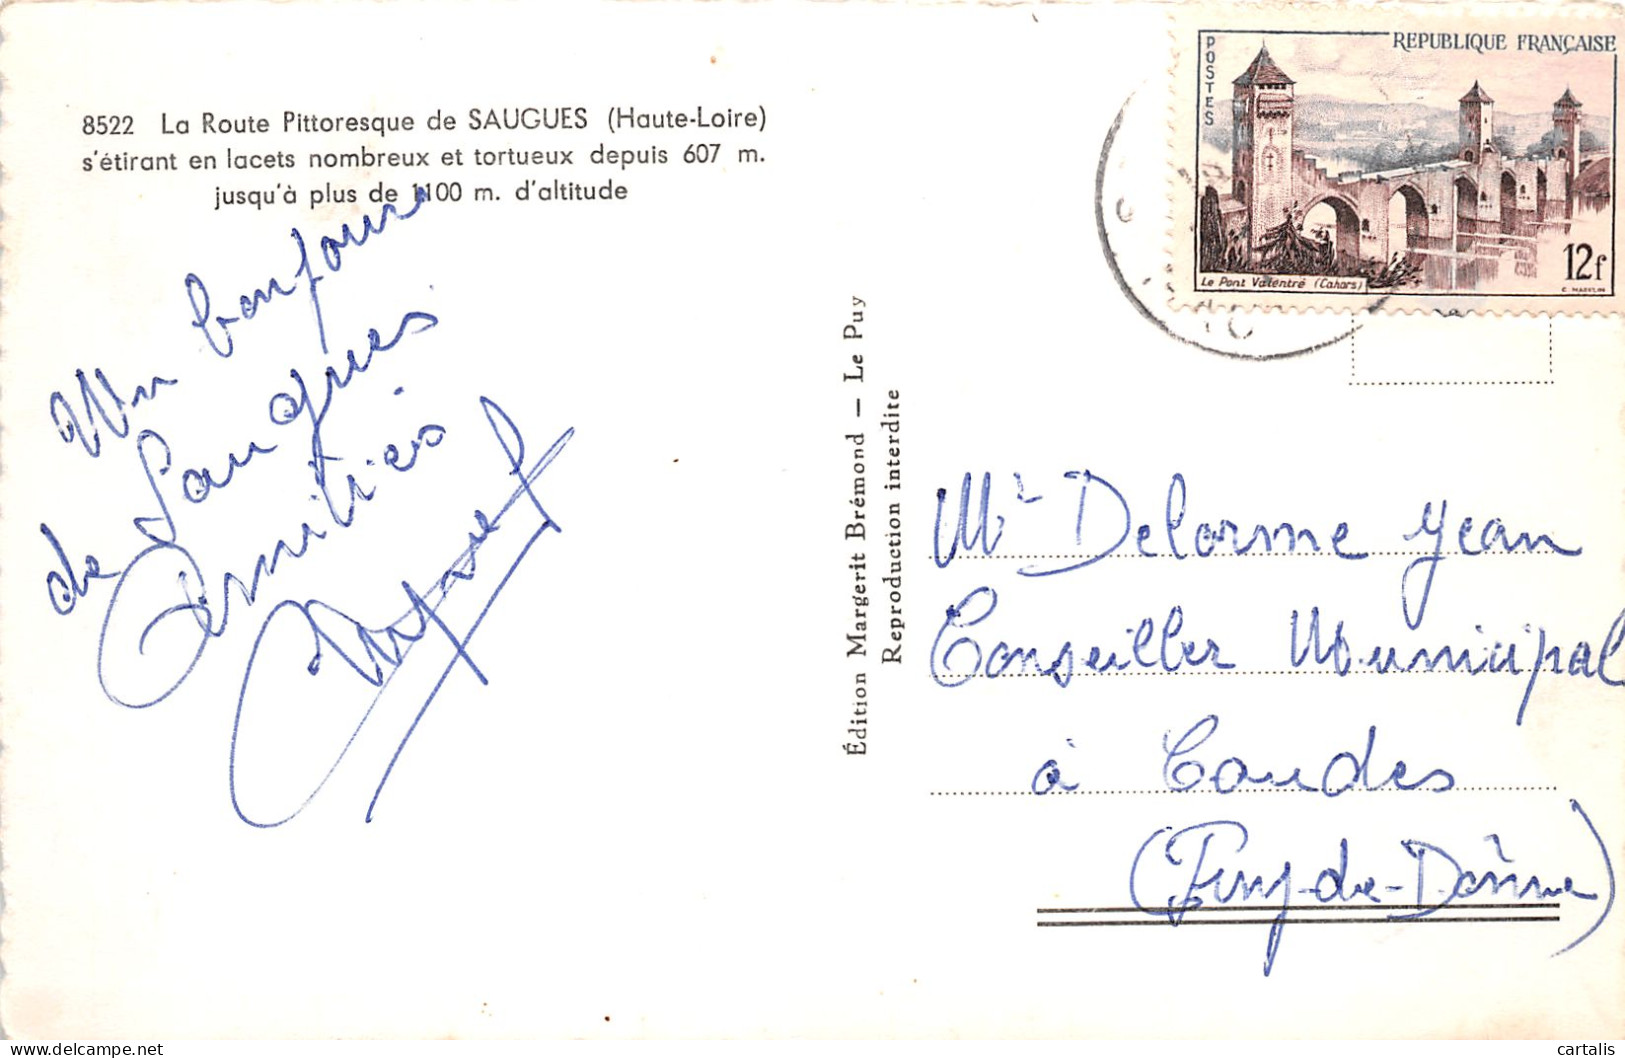 8522 La Route Pittoresque de SAUGUES (Haute-Loire)
s'étirant en lacets nombreux et tortueux depuis 607 m.
jusqu'à plus de 1100 m. d'altitude
Un bonjour
de Saugues
Amitiés
Édition Margerit Brémond — Le Puy
Reproduction interdite
POSTES
REPUBLIQUE FRANÇAISE
Le Pont Valentré (Cahors)
12f
C. MAZELIN
Mr Delorme Jean
Conseiller Municipal
à Coudes
(Puy-de-Dôme)
cartalis